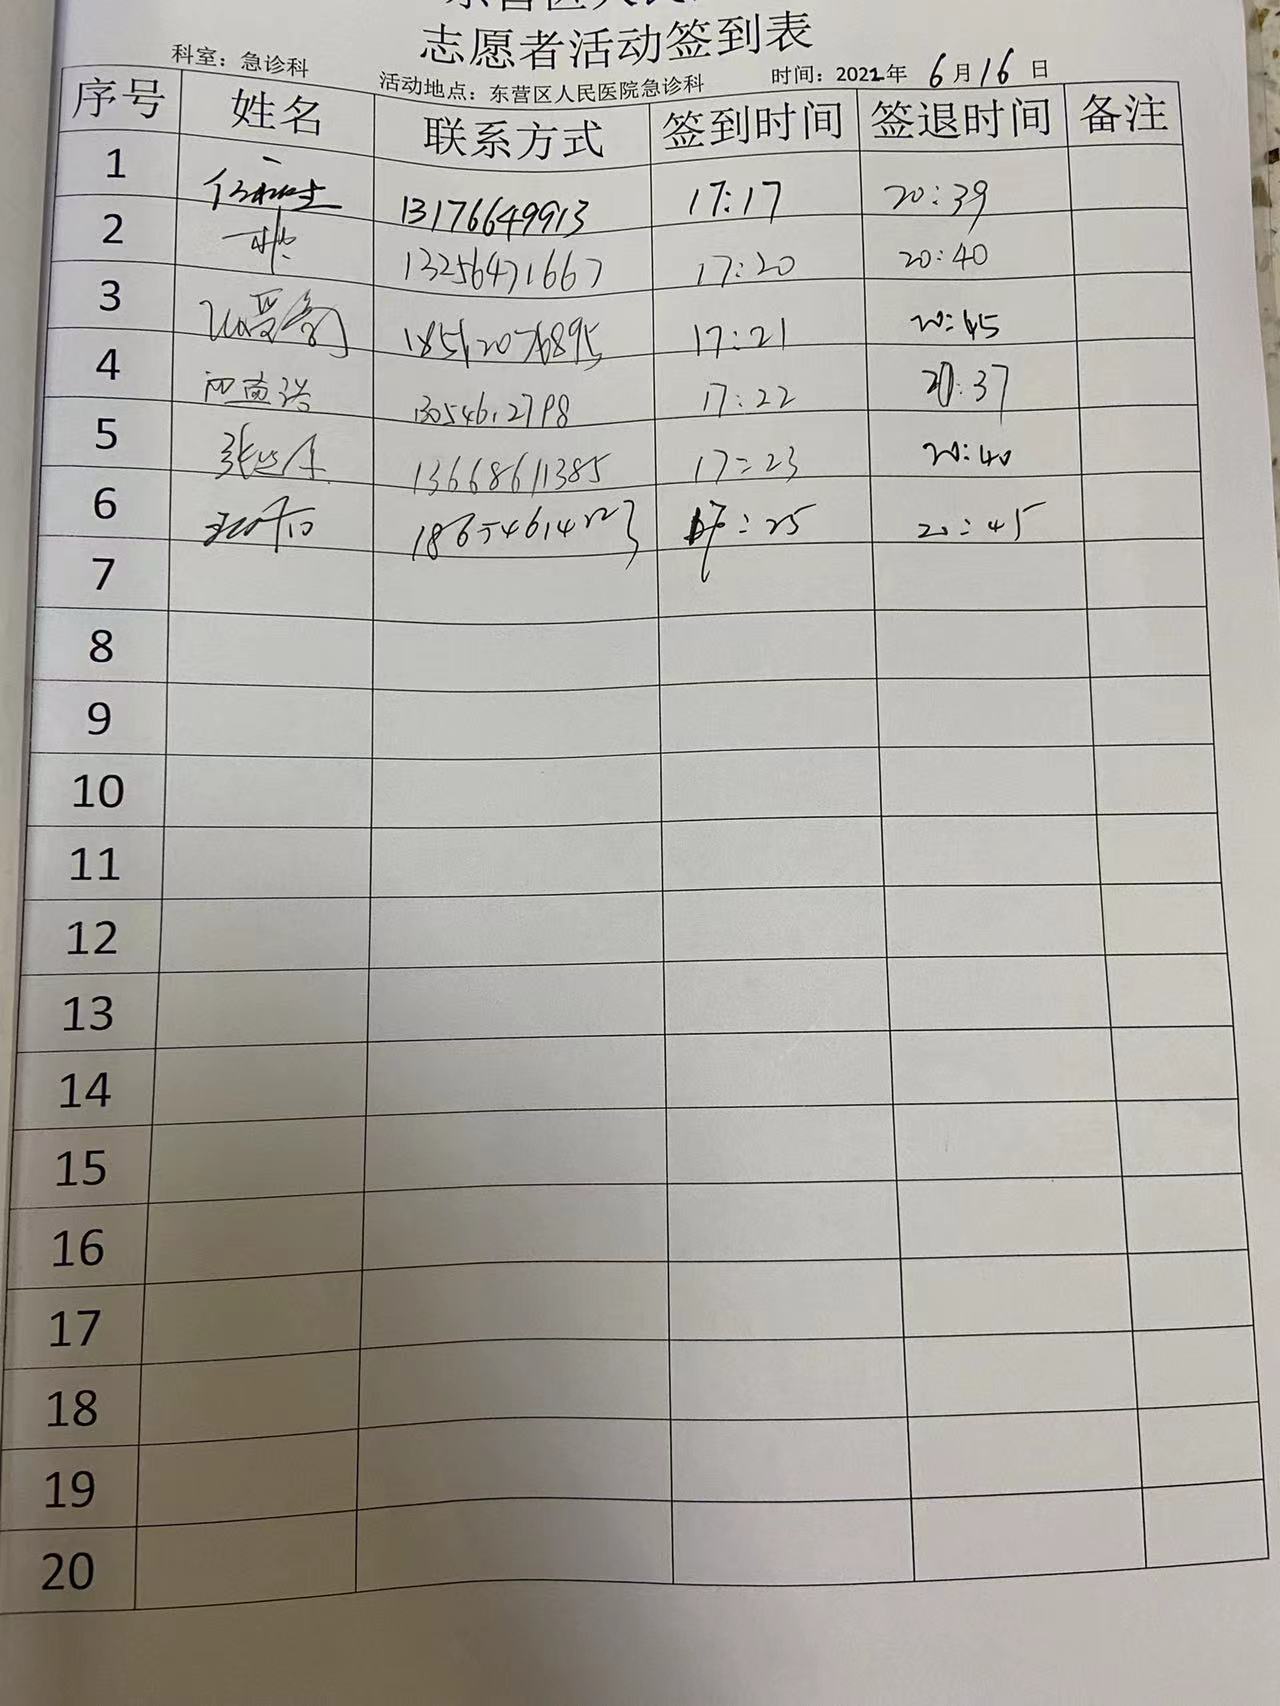 志愿者活动签到表
科室：急诊科 活动地点：东营区人民医院急诊科 时间：2022年 6月16日
序号 姓名 联系方式 签到时间 签退时间 备注
1 13176649913 17:17 20:39
2 13256471667 17:20 20:40
3 18512076895 17:21 20:45
4 17:22 20:37
5 13668611385 17:23 20:40
6 17:25 20:45
7
8
9
10
11
12
13
14
15
16
17
18
19
20